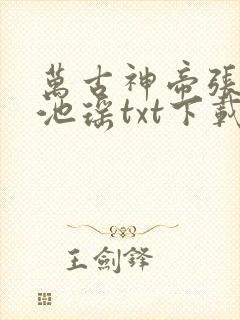 萬古神帝張
池瑤txt下載
王劍鋒